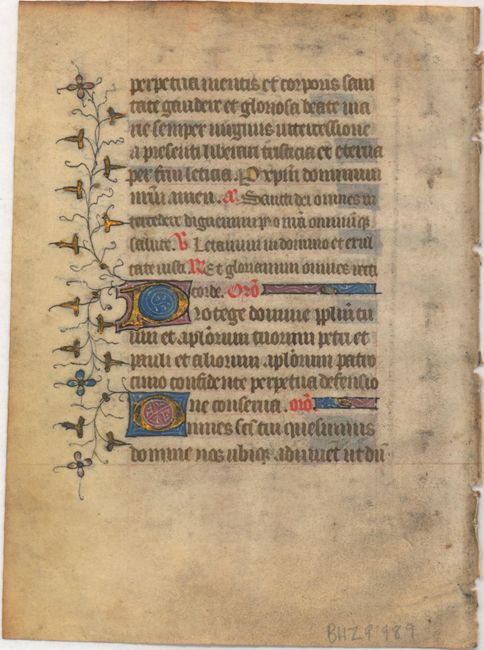 perpetua mentis et corporis sani
tate gaudere et gloriosa beate ma
rie semper virginis intercessione
a presenti liberari tristicia et eterna
per frui leticia. Per xpm dominum
nrm amen. a. Sancti dei omnes in
tercedere dignemini pro nra omniumq
salute. V Letamini in domino et exul
tate iusti. R Et gloriamini omnes recti
corde. Oro
Protege domine pplm tu
um et aplorum tuorum petri et
pauli et aliorum aplorum patro
cinio confidente perpetua defensio
ne conserva. oro.
Omnes sci tui quesumus
domine nos ubiq adiuvet ut dū
BHZ9 989